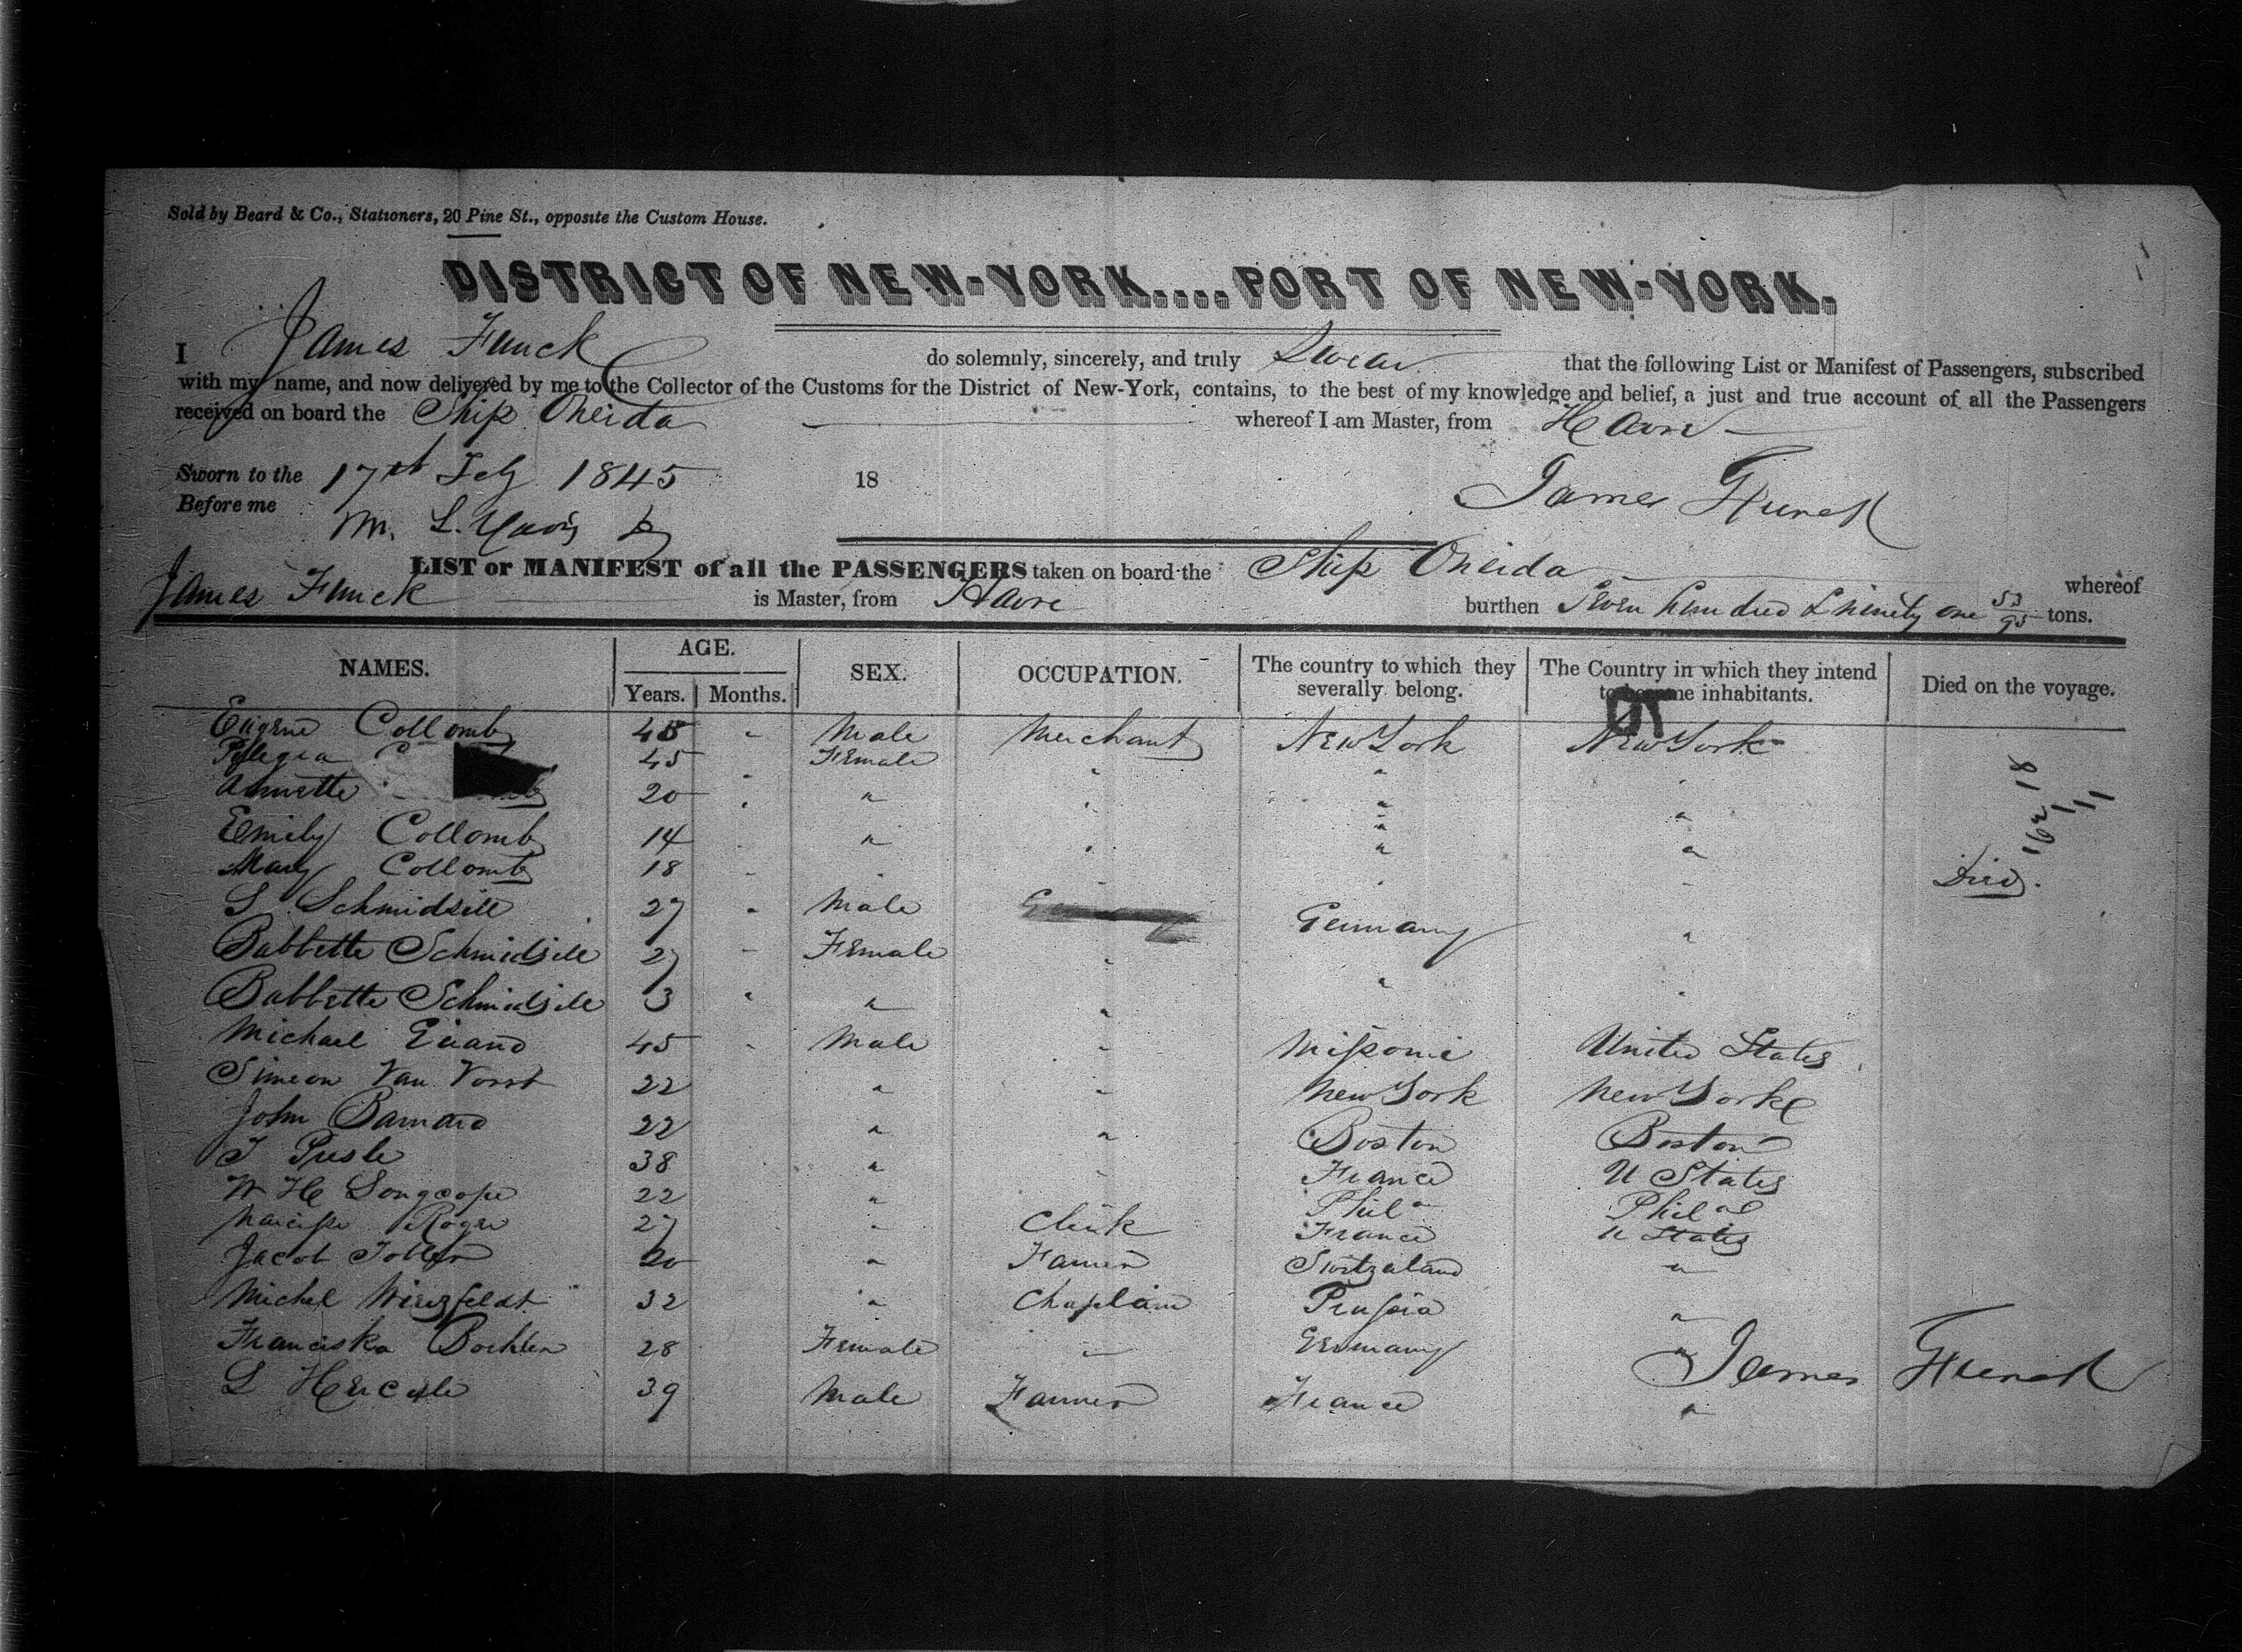 Sold by Beard & Co., Stationers, 20 Pine St., opposite the Custom House.
DISTRICT OF NEW-YORK....PORT OF NEW-YORK.
I James Funck do solemnly, sincerely, and truly Swear that the following List or Manifest of Passengers, subscribed
with my name, and now delivered by me to the Collector of the Customs for the District of New-York, contains, to the best of my knowledge and belief, a just and true account of all the Passengers
received on board the Ship Oneida whereof I am Master, from Havre
Sworn to the 17th Feby 1845 18
James Funck
Before me M. L. Davis
LIST or MANIFEST of all the PASSENGERS taken on board the Ship Oneida whereof
James Funck is Master, from Havre burthen Seven hundred & ninety one 53/95 tons.
NAMES. AGE. Years. Months. SEX. OCCUPATION. The country to which they severally belong. The Country in which they intend to become inhabitants. Died on the voyage.
Eugene Collomb 48 - Male Merchant New York New York
Pelegia 45 Female " "
Annette 20 " " " "
Emily Collomb 14 " " " "
Mary Collomb 18 - " " " " Died.
S Schmidsill 27 - Male Germany "
Babbette Schmidsill 27 - Female " " "
Babbette Schmidsill 3 " " "
Michael 45 - Male " Missouri United States
Simeon Van Vorst 22 " " New York New York
John Barnard 22 " " Boston Boston
38 " " France U States
W H Longcope 22 " Phila Phila
Narcisse Roger 27 " Clerk France U States
Jacob Tobler 20 " Farmer Switzerland "
Michel 32 " Chaplain Prussia "
Franciska 28 Female " Germany "
James Funck
L Hercule 39 Male Farmer France "